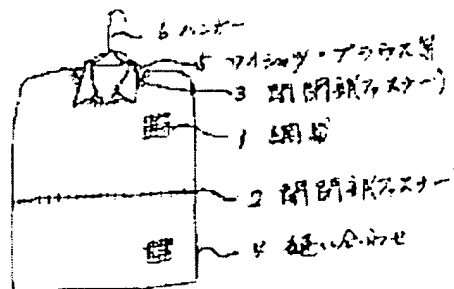 6 ハンガー
5 ワイシャツ・ブラウス等
3 開閉部(ファスナー)
1 網
2 開閉部(ファスナー
4 縫い合わせ